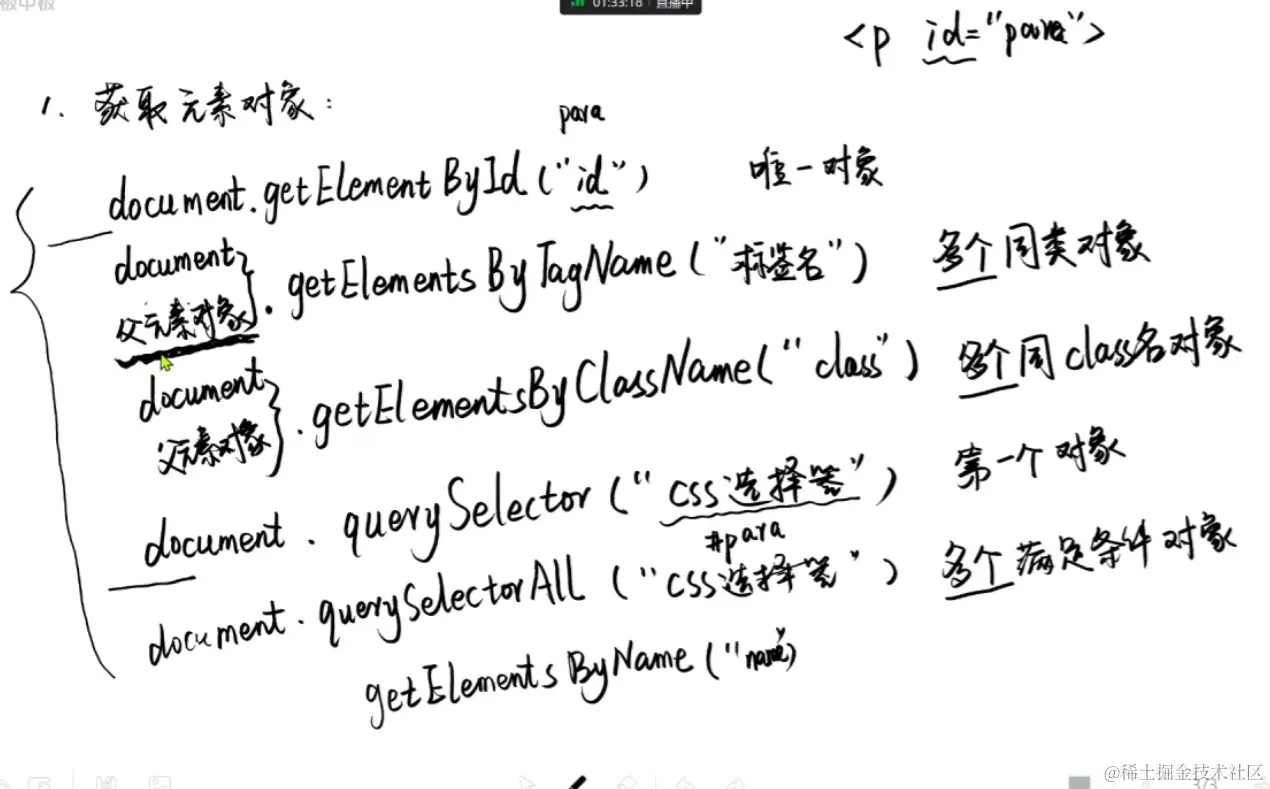 板中板
01:33:18 直播中
<p id="para">
1. 获取元素对象:
para
document.getElementById("id") 唯一对象
document
父元素对象
.getElementsByTagName("标签名") 多个同类对象
document
父元素对象
.getElementsByClassName("class") 多个同class名对象
document.querySelector("css选择器") 第一个对象
#para
document.querySelectorAll("css选择器") 多个满足条件对象
getElementsByName("name")
@稀土掘金技术社区